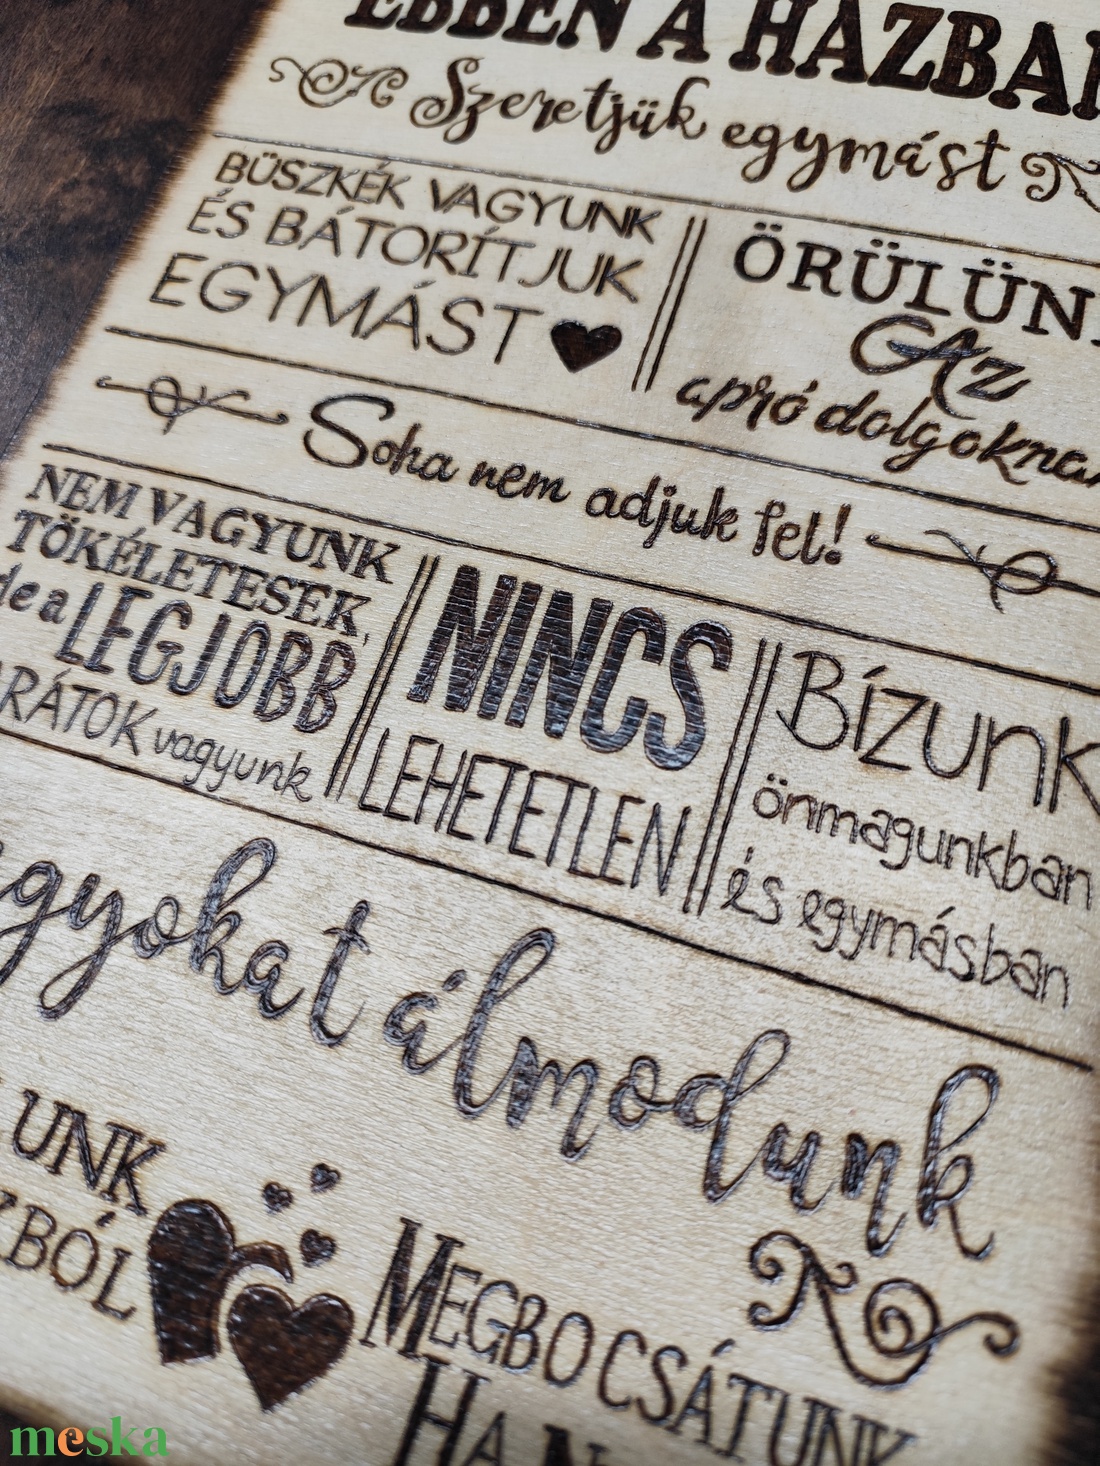 EBBEN A HÁZBAN
Szeretjük egymást
BÜSZKÉK VAGYUNK
ÉS BÁTORÍTJUK
EGYMÁST
ÖRÜLÜN
Az
apró dolgokna
Soha nem adjuk fel!
NEM VAGYUNK
TÖKÉLETESEK,
de a LEGJOBB
RÁTOK vagyunk
NINCS
LEHETETLEN
Bízunk
önmagunkban
és egymásban
gyokat álmodunk
UNK
KBÓL
MEGBOCSÁTUNK
HA
meska